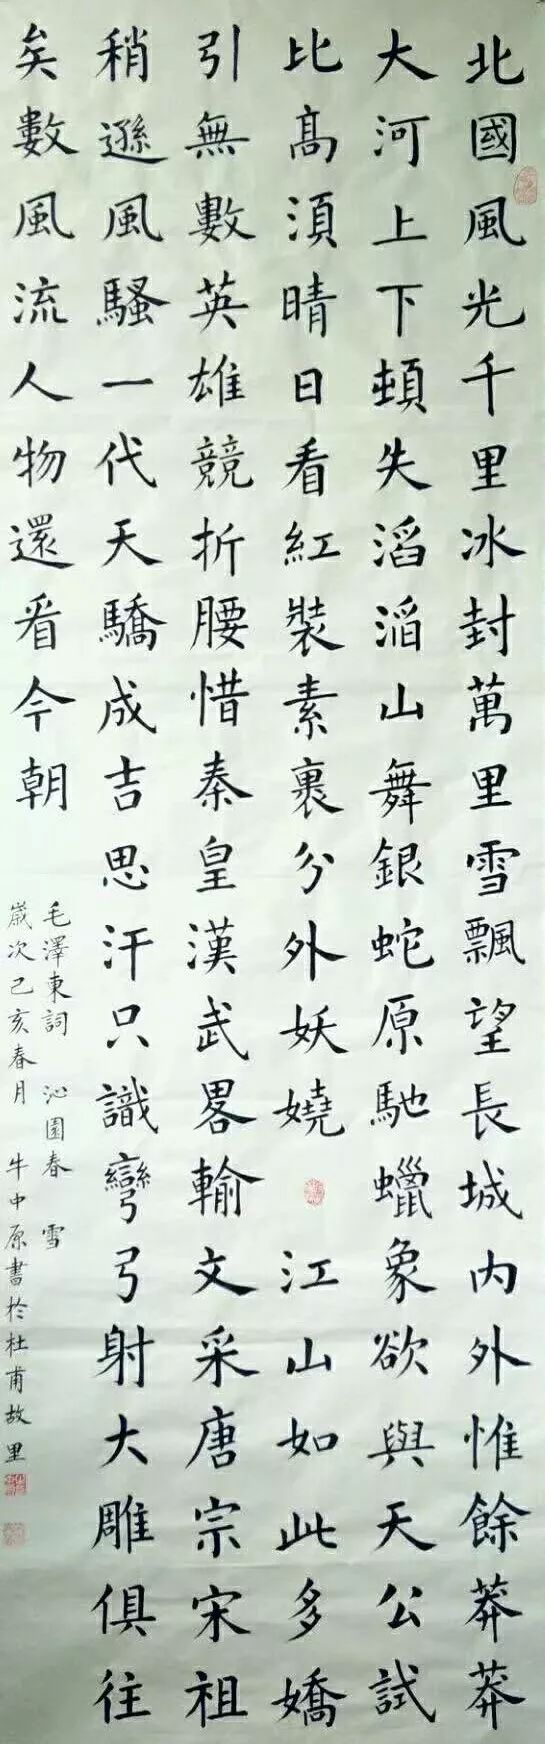 北國風光千里冰封萬里雪飄望長城内外惟餘莽莽
大河上下頓失滔滔山舞銀蛇原馳蠟象欲與天公試
比髙須晴日看紅裝素裹分外妖嬈 江山如此多嬌
引無數英雄競折腰惜秦皇漢武畧輸文采唐宗宋祖
稍遜風騷一代天驕成吉思汗只識彎弓射大雕俱往
矣數風流人物還看今朝
毛澤東詞 沁園春 雪
歲次己亥春月 牛中原書於杜甫故里